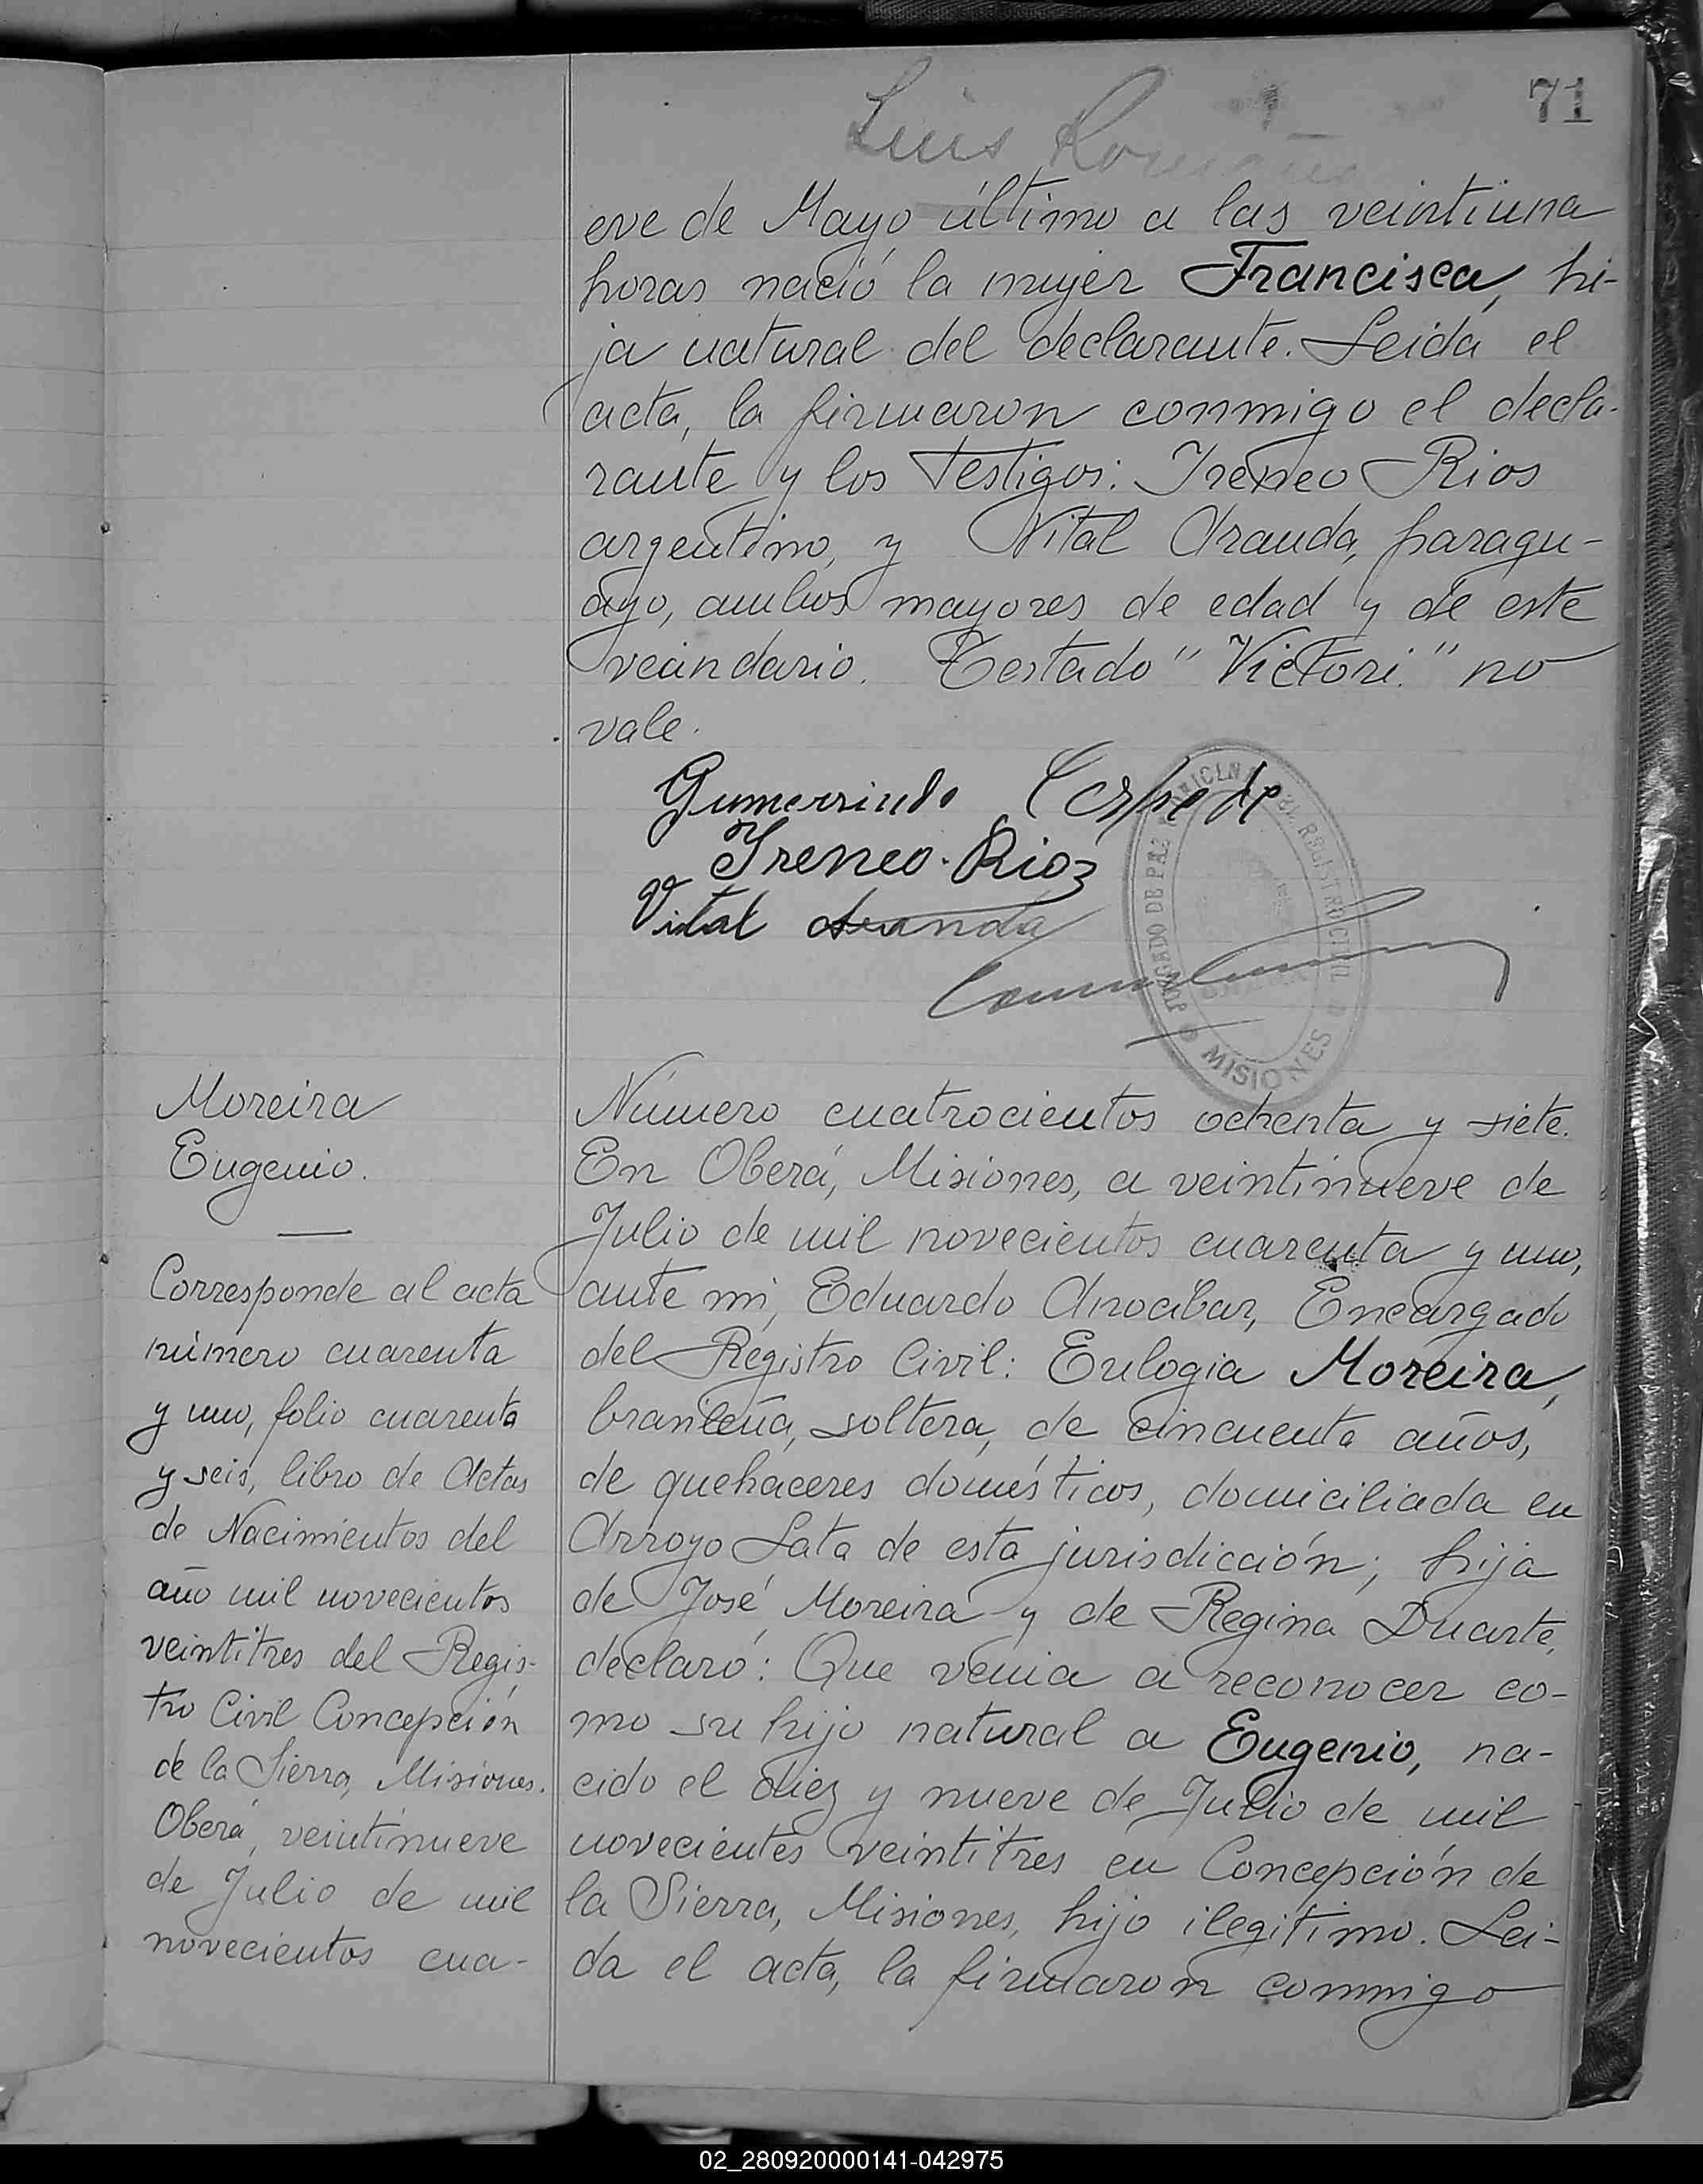 71
Luis
eve de Mayo último a las veintiuna
horas nació la mujer Francisca, hi-
ja natural del declarante. Leida el
acta, la firmaron conmigo el decla-
rante y los testigos: Ireneo Rios
argentino, y Vital Aranda, paragu-
ayo, ambos mayores de edad y de este
vecindario. Testado "Victori." no
vale.
Gumersindo Cespede
Ireneo Rios
Vital Aranda
JUZGADO DE PAZ OFICINA DEL REGISTRO CIVIL
MISIONES
Moreira
Eugenio.
Corresponde al acta
número cuarenta
y uno, folio cuarenta
y seis, libro de Actas
de Nacimientos del
año mil novecientos
veintitres del Regis-
tro Civil Concepción
de la Sierra, Misiones.
Oberá, veintinueve
de Julio de mil
novecientos cua-
Número cuatrocientos ochenta y siete.
En Oberá, Misiones, a veintinueve de
Julio de mil novecientos cuarenta y uno,
ante mi, Eduardo Arocibar, Encargado
del Registro Civil: Eulogia Moreira,
brasileña, soltera, de cincuenta años,
de quehaceres domésticos, domiciliada en
Arroyo Lata de esta jurisdicción; hija
de José Moreira y de Regina Duarte,
declaró: Que venia a reconocer co-
mo su hijo natural a Eugenio, na-
cido el diez y nueve de Julio de mil
novecientos veintitres en Concepción de
la Sierra, Misiones, hijo ilegitimo. Lei-
da el acta, la firmaron conmigo
02_280920000141-042975